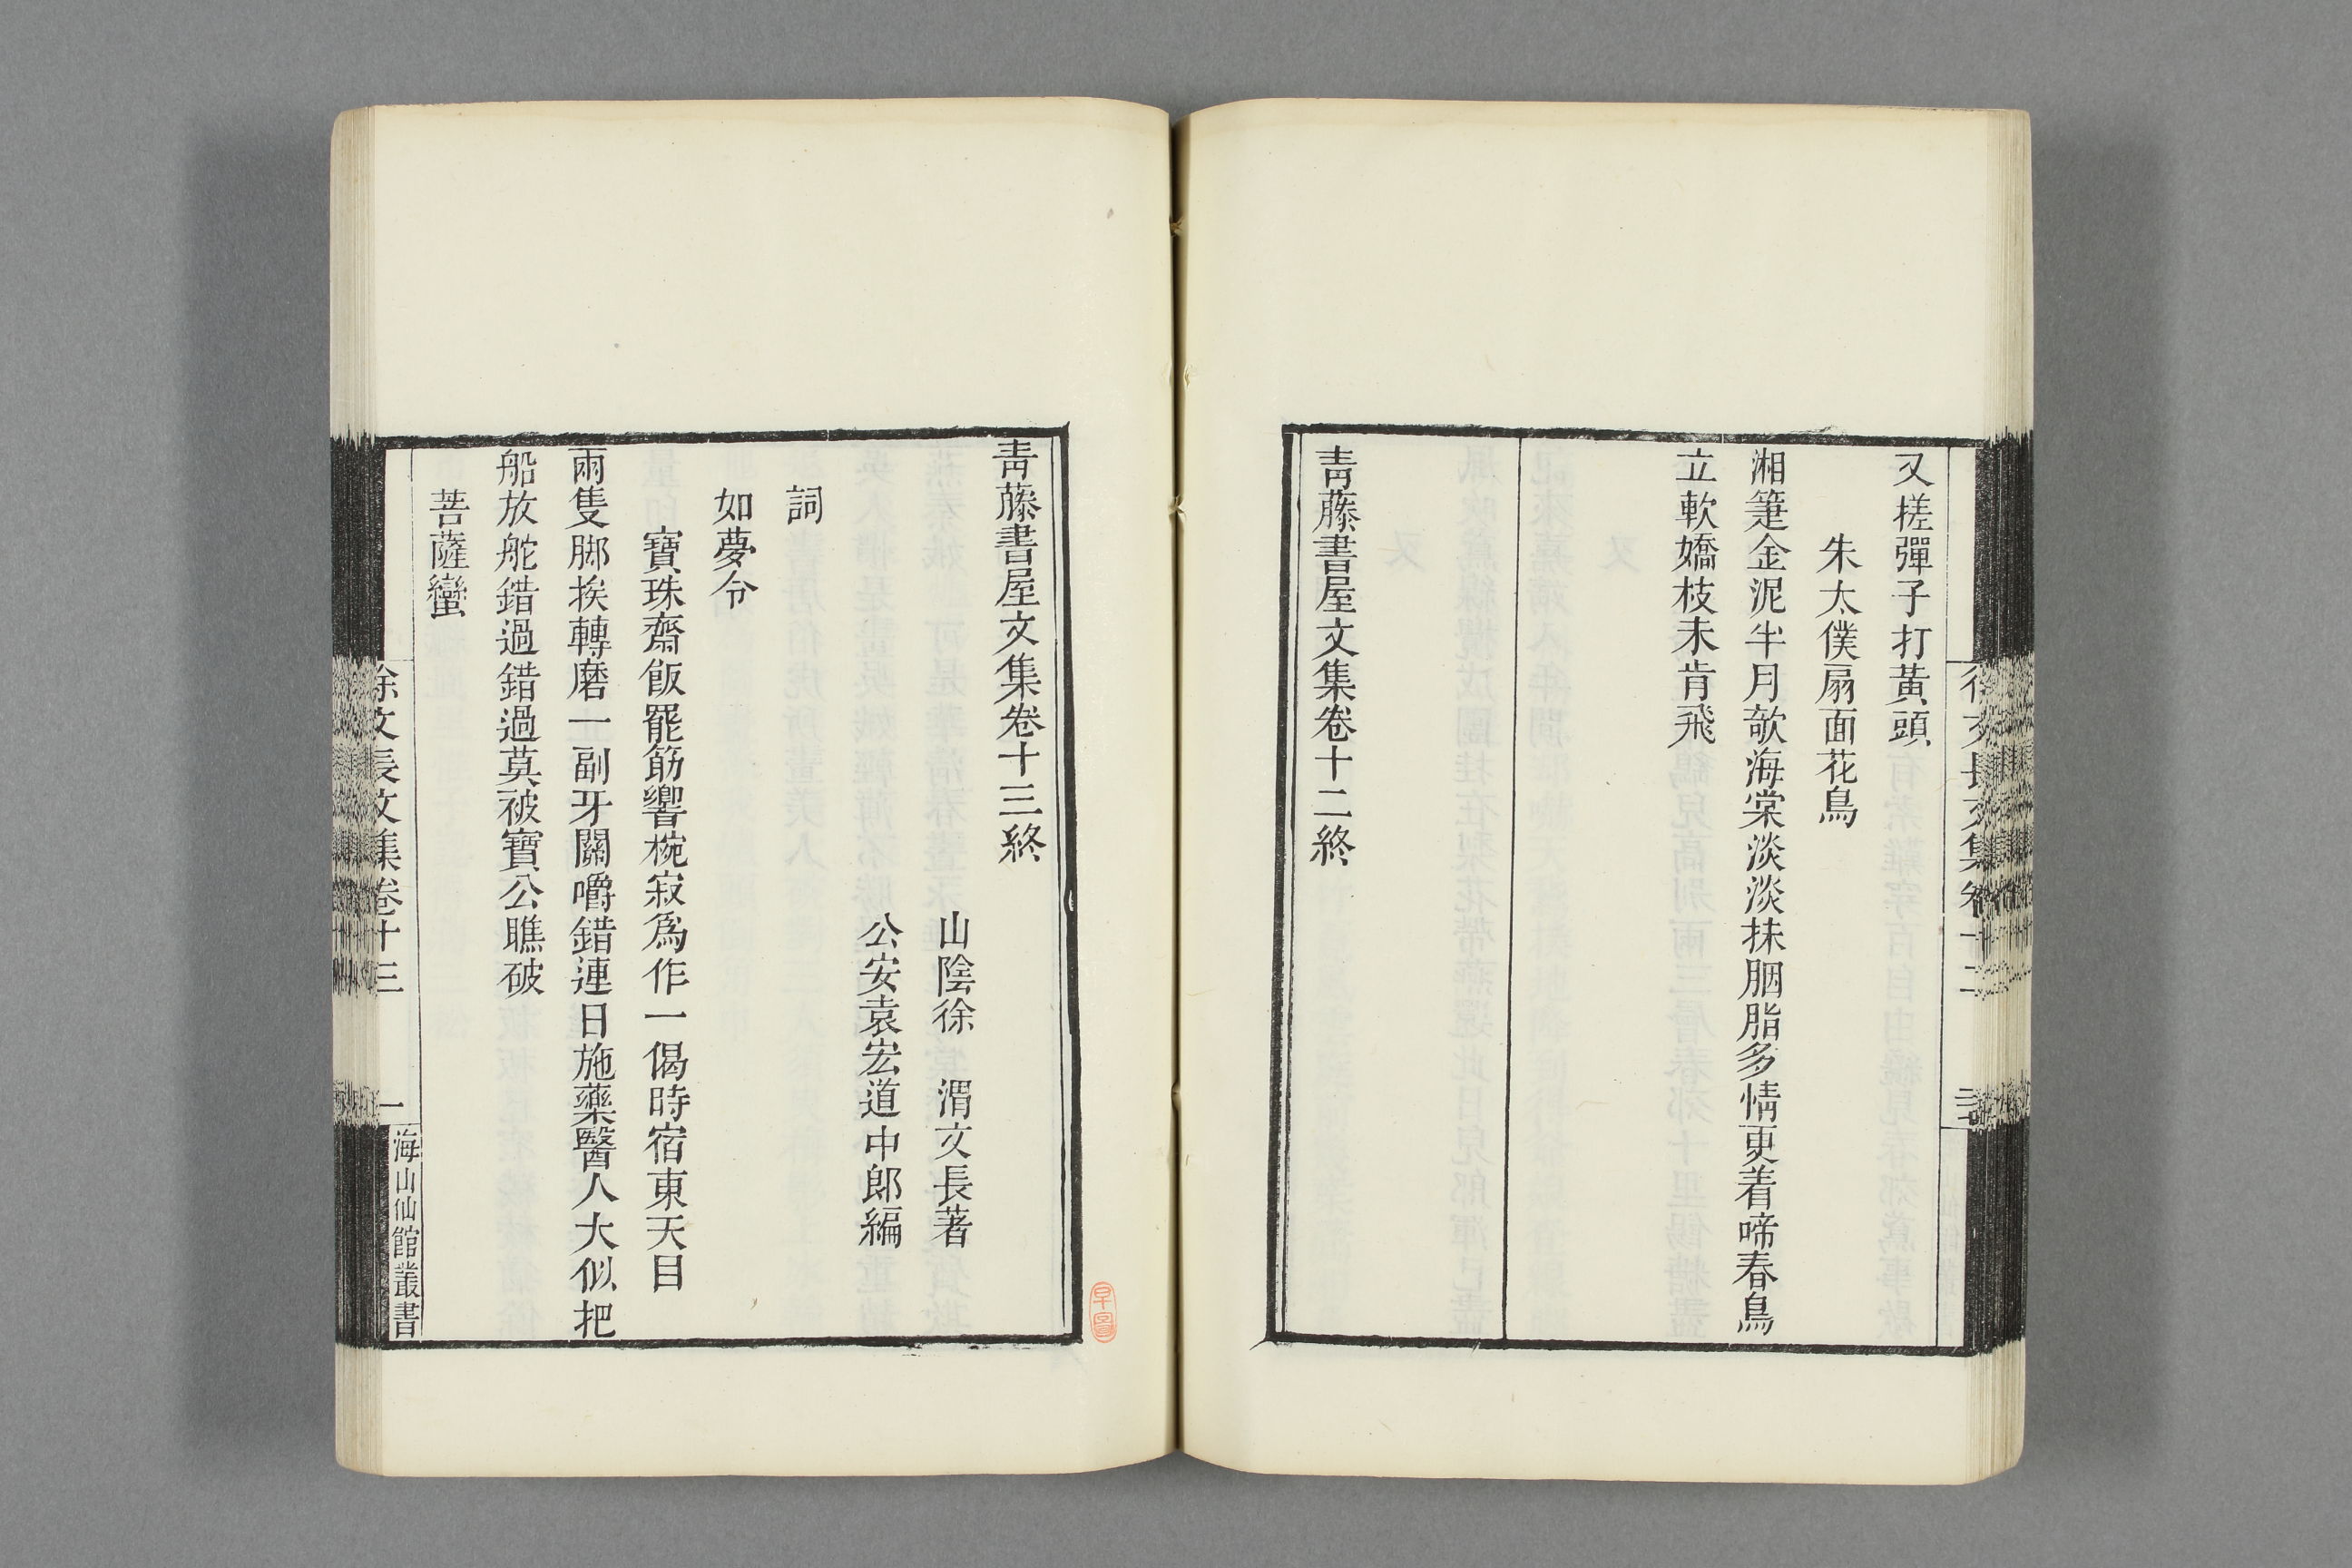 又搓彈子打黃頭
朱太僕扇面花鳥
湘箑金泥半月欹海棠淡淡抹胭脂多情更着啼春鳥
立軟嬌枝未肯飛
青藤書屋文集卷十二終
青藤書屋文集卷十三終
山陰徐 渭文長著
公安袁宏道中郎編
詞
如夢令
寶珠齋飯罷筯響椀寂爲作一偈時宿東天目
兩隻腳挨轉磨一副牙關嚼錯連日施藥醫人大似把
船放舵錯過錯過莫被寶公瞧破
菩薩蠻
徐文長文集卷十三
一
海山仙館叢書